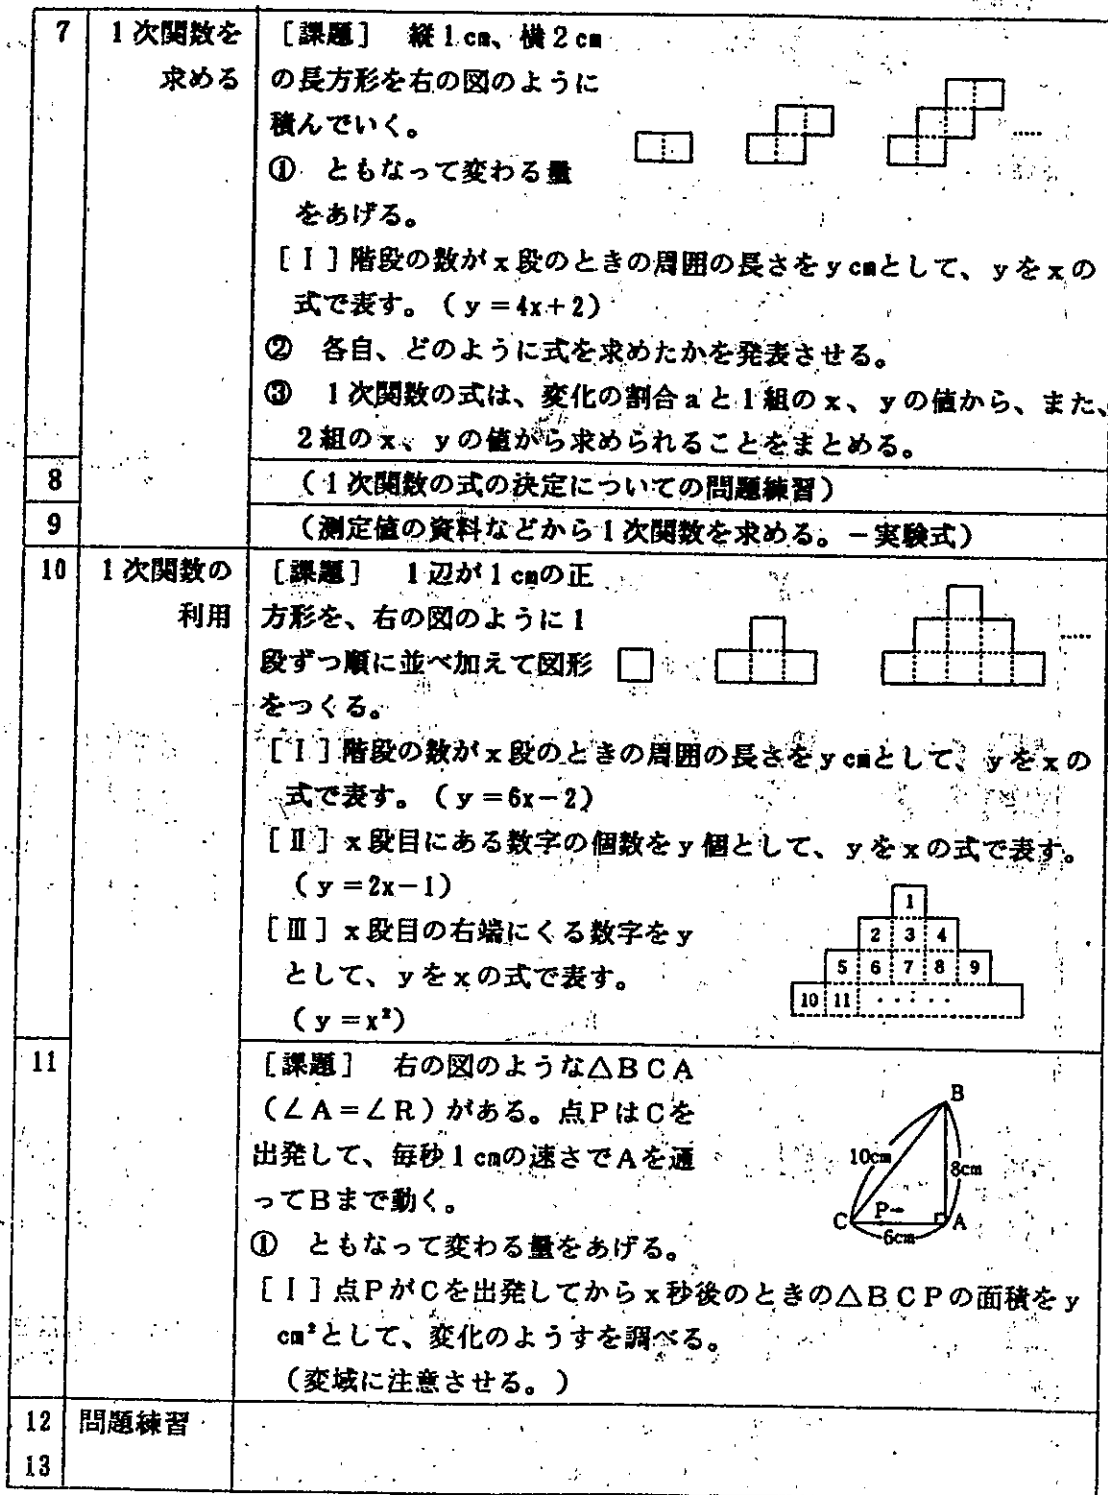 7 1次関数を [課題] 縦1cm、横2cm
求める の長方形を右の図のように
積んでいく。
① ともなって変わる量
をあげる。
[Ⅰ]階段の数がx段のときの周囲の長さをycmとして、yをxの
式で表す。(y=4x+2)
② 各自、どのように式を求めたかを発表させる。
③ 1次関数の式は、変化の割合aと1組のx、yの値から、また、
2組のx、yの値から求められることをまとめる。
8 (1次関数の式の決定についての問題練習)
9 (測定値の資料などから1次関数を求める。-実験式)
10 1次関数の [課題] 1辺が1cmの正
利用 方形を、右の図のように1
段ずつ順に並べ加えて図形
をつくる。
[Ⅰ]階段の数がx段のときの周囲の長さをycmとして、yをxの
式で表す。(y=6x-2)
[Ⅱ]x段目にある数字の個数をy個として、yをxの式で表す。
(y=2x-1)
[Ⅲ]x段目の右端にくる数字をy
として、yをxの式で表す。
(y=x²)
1
2 3 4
5 6 7 8 9
10 11 ・・・・・
11 [課題] 右の図のような△BCA
(∠A=∠R)がある。点PはCを
出発して、毎秒1cmの速さでAを通
ってBまで動く。
① ともなって変わる量をあげる。
B
10cm
8cm
C P→ A
6cm
[Ⅰ]点PがCを出発してからx秒後のときの△BCPの面積をy
cm²として、変化のようすを調べる。
(変域に注意させる。)
12 問題練習
13